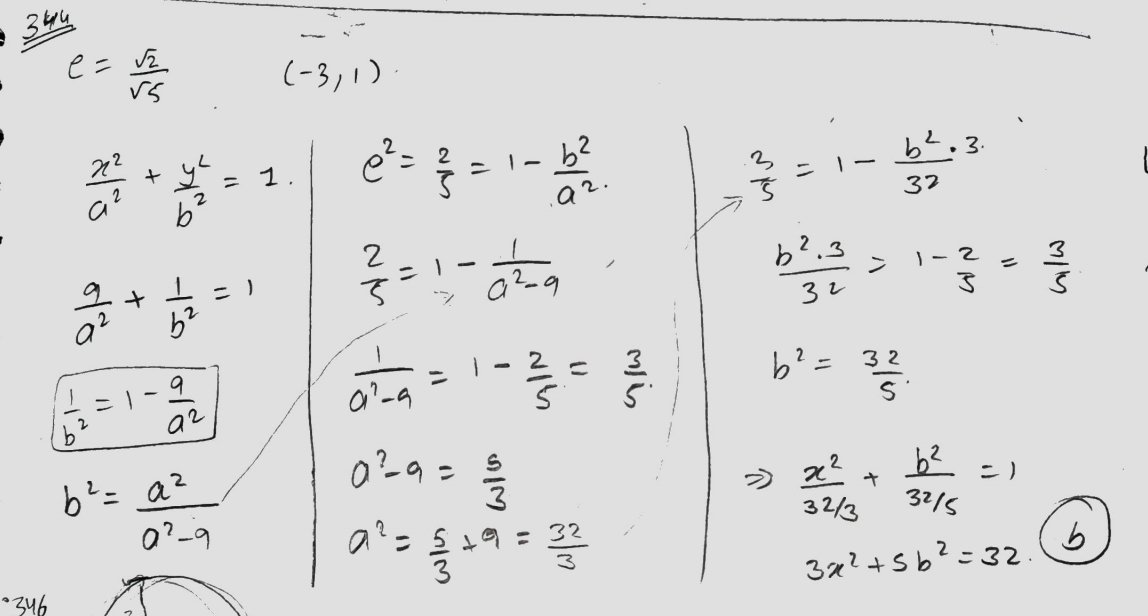 344
e = √2/√5 (-3, 1)
x²/a² + y²/b² = 1.
9/a² + 1/b² = 1
1/b² = 1 - 9/a²
b² = a²/(a²-9)
e² = 2/5 = 1 - b²/a².
2/5 = 1 - 1/(a²-9)
1/(a²-9) = 1 - 2/5 = 3/5.
a²-9 = 5/3
a² = 5/3 + 9 = 32/3
2/5 = 1 - b²·3/32
b²·3/32 = 1 - 2/5 = 3/5
b² = 32/5.
⇒ x²/(32/3) + b²/(32/5) = 1
3x² + 5b² = 32. b
346